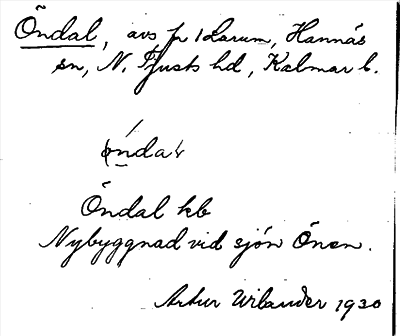 Öndal, avs p 1 Larum, Hannäs
sn, N. Tjusts hd, Kalmar l.
öndal kb
Nybyggnad vid sjön Önen.
Artur Wilander 1930